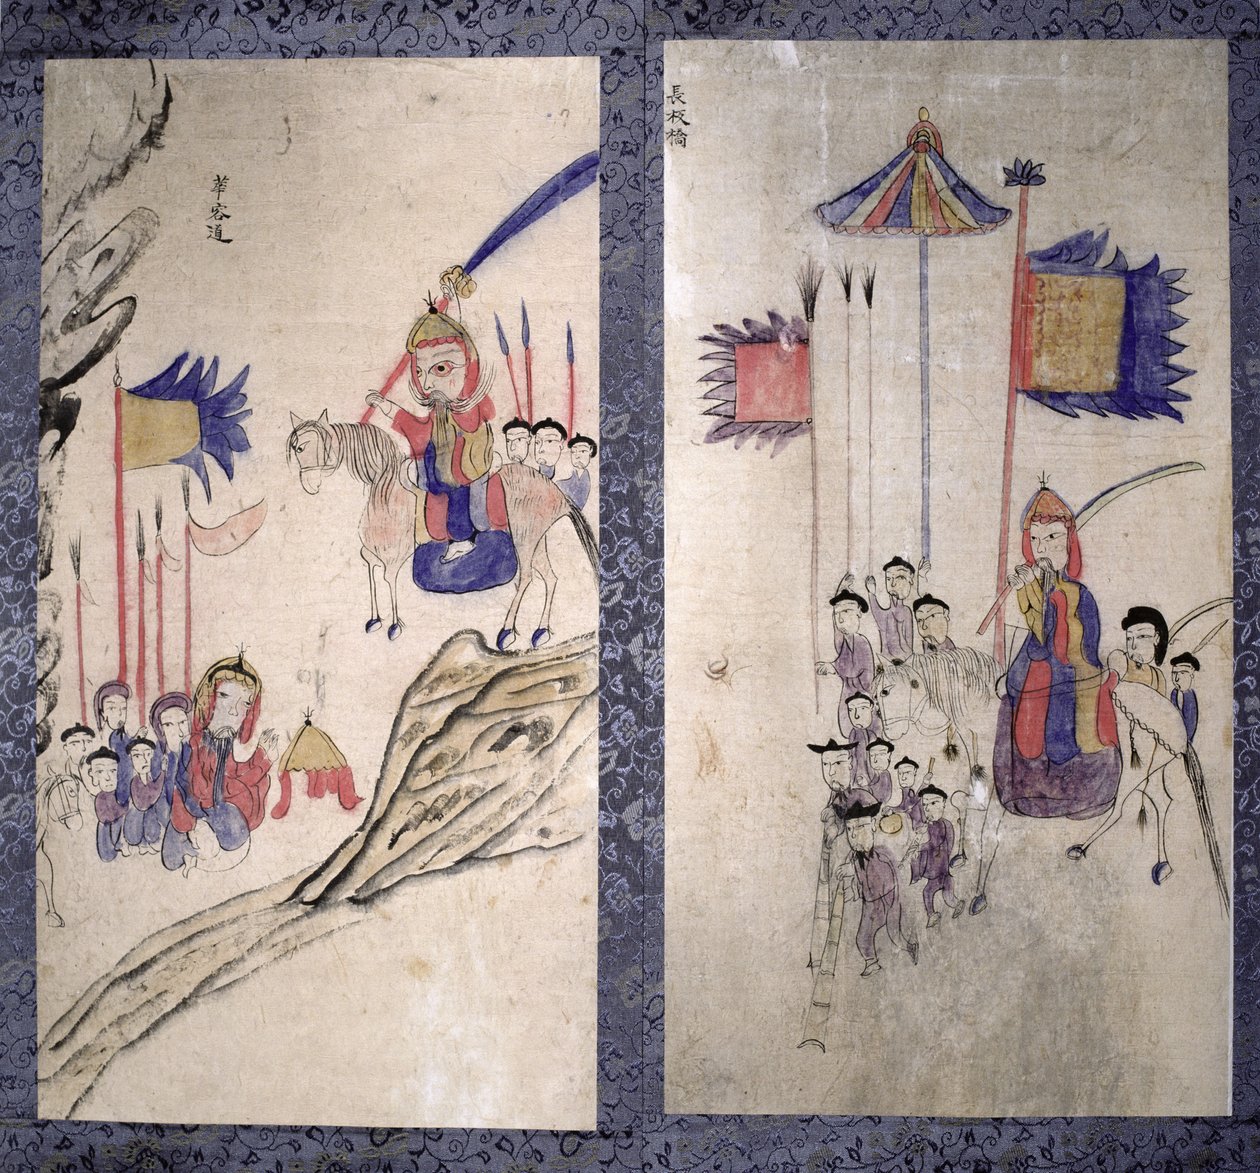 華容道
長板橋